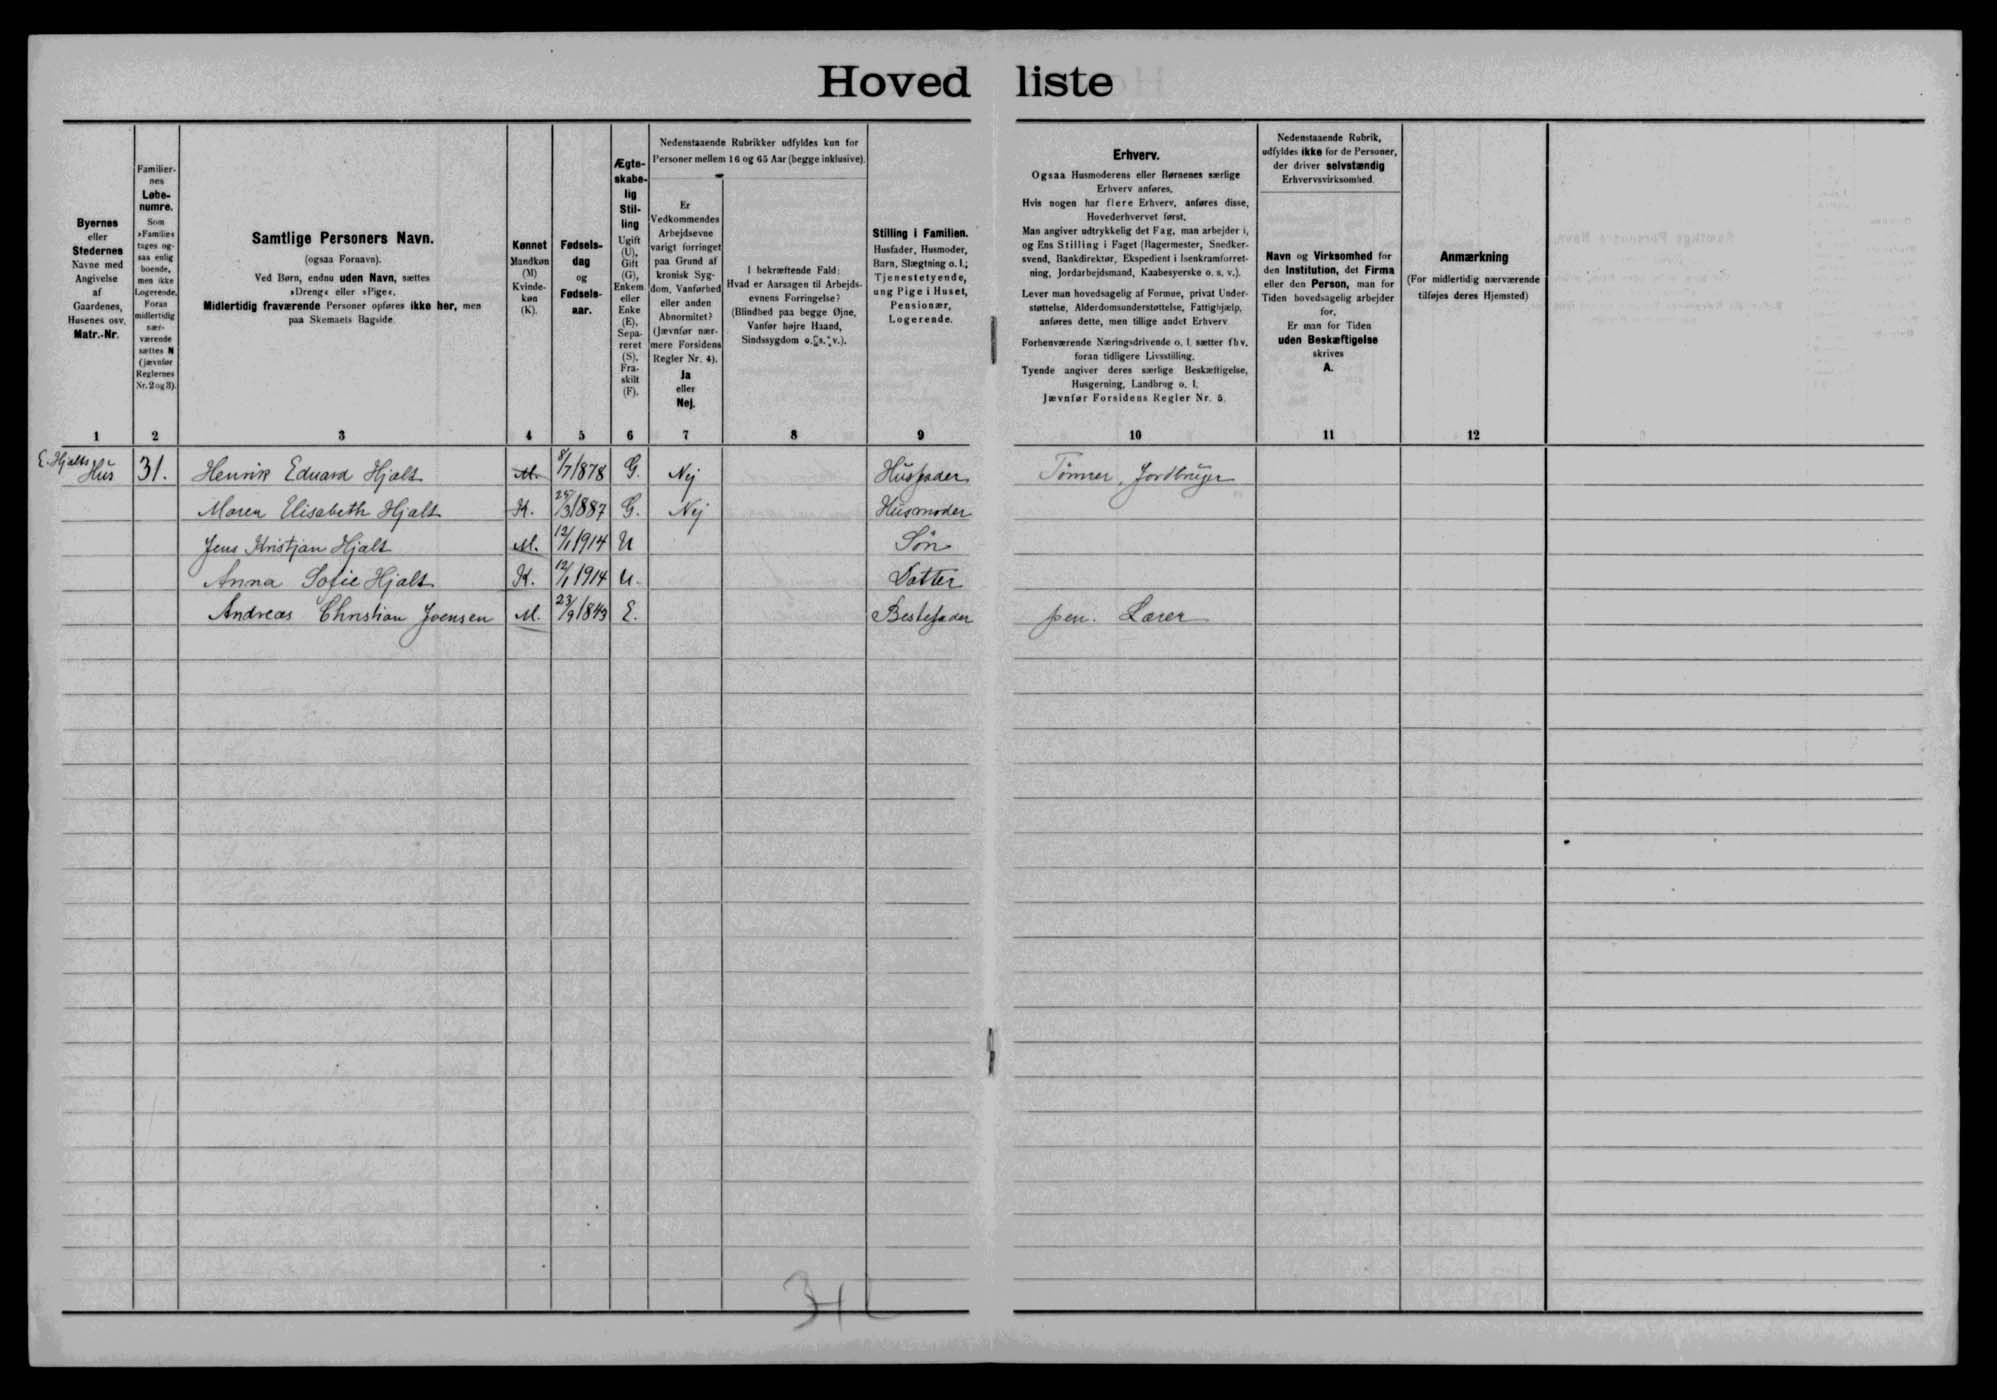 Hovedliste
Byernes
eller
Stedernes
Navne med
Angivelse
af
Gaardenes,
Husenes osv.
Matr.-Nr.
Familier-
nes
Løbe-
numre.
Som
»Familie«
tages og-
saa enlig
boende,
men ikke
Logerende.
Foran
midlertidig
nær-
værende
sættes N
(jævnfør
Reglernes
Nr. 2 og 3).
Samtlige Personers Navn.
(ogsaa Fornavn).
Ved Børn, endnu uden Navn, sættes
»Dreng« eller »Pige«.
Midlertidig fraværende Personer opføres ikke her, men
paa Skemaets Bagside.
Kønnet
Mandkøn
(M)
Kvinde-
køn
(K).
Fødsels-
dag
og
Fødsels-
aar.
Ægte-
skabe-
lig
Stil-
ling
Ugift
(U),
Gift
(G),
Enkem.
eller
Enke
(E),
Sepa-
reret
(S),
Fra-
skilt
(F).
Nedenstaaende Rubrikker udfyldes kun for
Personer mellem 16 og 65 Aar (begge inklusive).
Er
Vedkommendes
Arbejdsevne
varigt forringet
paa Grund af
kronisk Syg-
dom, Vanførhed
eller anden
Abnormitet?
(Jævnfør nær-
mere Forsidens
Regler Nr. 4).
Ja
eller
Nej.
I bekræftende Fald:
Hvad er Aarsagen til Arbejds-
evnens Forringelse?
(Blindhed paa begge Øjne,
Vanfør højre Haand,
Sindssygdom o. s. v.).
Stilling i Familien.
Husfader, Husmoder,
Barn, Slægtning o. l.;
Tjenestetyende,
ung Pige i Huset,
Pensionær,
Logerende.
Erhverv.
Ogsaa Husmoderens eller Børnenes særlige
Erhverv anføres.
Hvis nogen har flere Erhverv, anføres disse,
Hovederhvervet først.
Man angiver udtrykkelig det Fag, man arbejder i,
og Ens Stilling i Faget (Bagermester, Snedker-
svend, Bankdirektør, Ekspedient i Isenkramforret-
ning, Jordarbejdsmand, Kaabesyerske o. s. v.).
Lever man hovedsagelig af Formue, privat Under-
støttelse, Alderdomsunderstøttelse, Fattighjælp,
anføres dette, men tillige andet Erhverv
Forhenværende Næringsdrivende o. l. sætter fhv.
foran tidligere Livsstilling.
Tyende angiver deres særlige Beskæftigelse,
Husgerning, Landbrug o. l.
Jævnfør Forsidens Regler Nr. 5.
Nedenstaaende Rubrik,
udfyldes ikke for de Personer,
der driver selvstændig
Erhvervsvirksomhed.
Navn og Virksomhed for
den Institution, det Firma
eller den Person, man for
Tiden hovedsagelig arbejder
for.
Er man for Tiden
uden Beskæftigelse
skrives
A.
Anmærkning
(For midlertidig nærværende
tilføjes deres Hjemsted)
1 2 3 4 5 6 7 8 9 10 11 12
E. Hjalts Hus 31. Henrik Eduard Hjalt M. 8/7 1878 G. Nej Husfader Tømrer, Jordbruger
Maren Elisabeth Hjalt K. 25/3 1887 G. Nej Husmoder
Jens Kristjan Hjalt M. 12/1 1914 U Søn
Anna Sofie Hjalt K. 12/1 1914 U. Datter
Andreas Christian Joensen M. 23/9 1843 E. Bestefader pen. Lærer